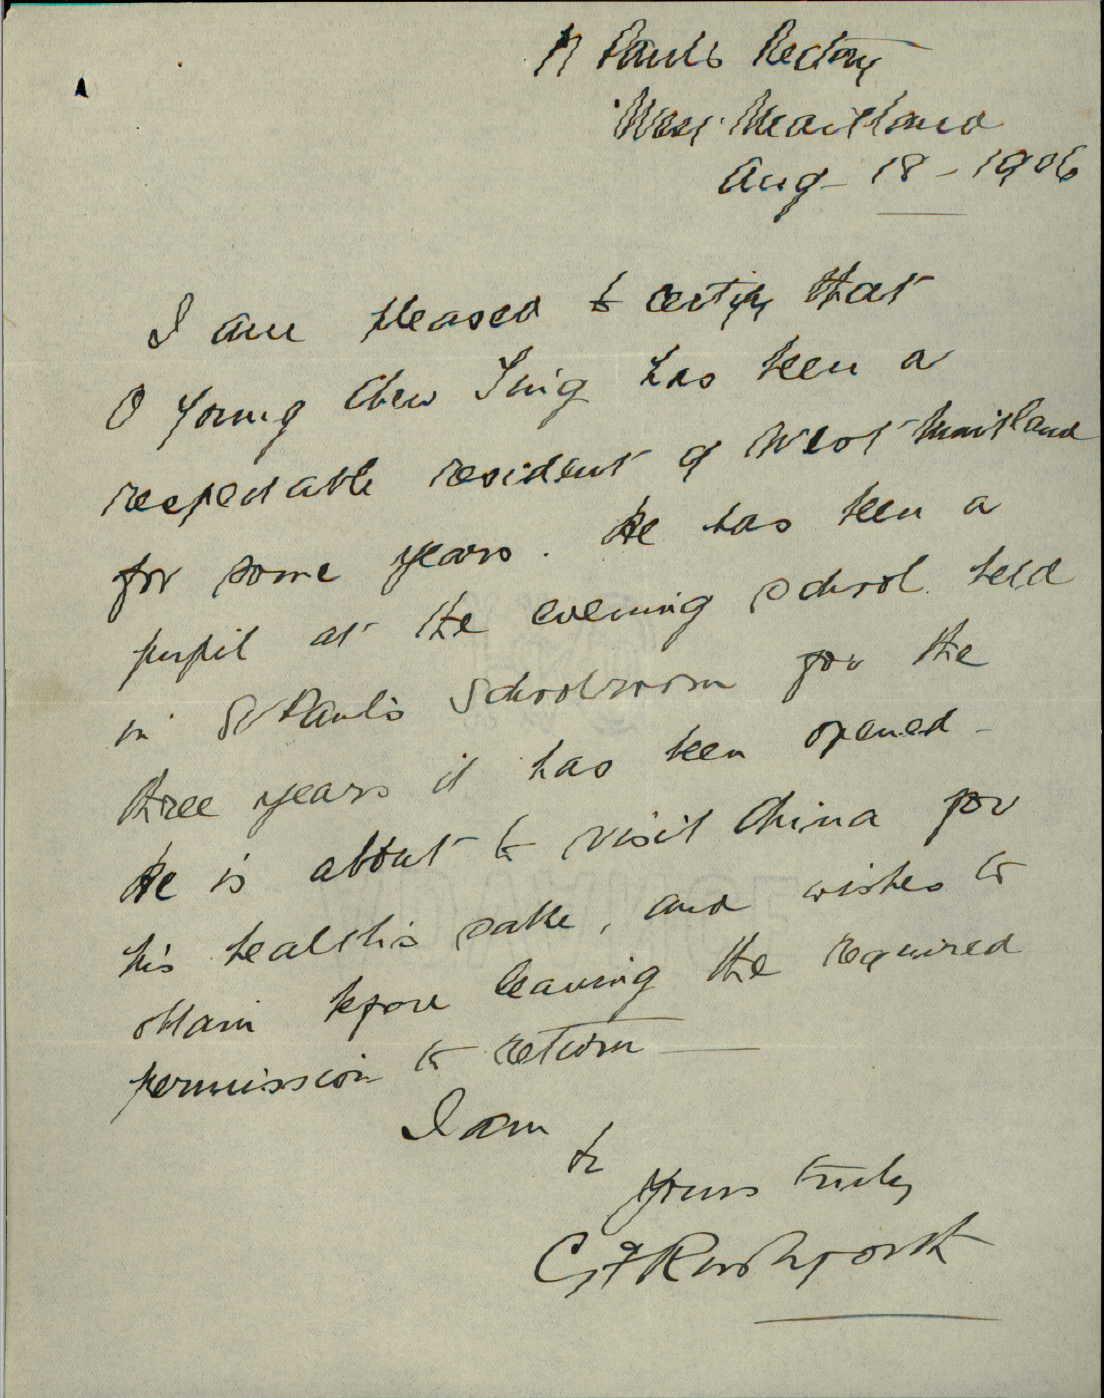 St Pauls Rectory
West Maitland
Aug - 18 - 1906
I am pleased to certify that
O Young Chew Ting has been a
respectable resident of West Maitland
for some years. He has been a
pupil at the evening school held
in St Paul's Schoolroom for the
three years it has been opened -
He is about to visit China for
his health's sake, and wishes to
obtain before leaving the required
permission to return —
I am
Yours truly
Rushforth